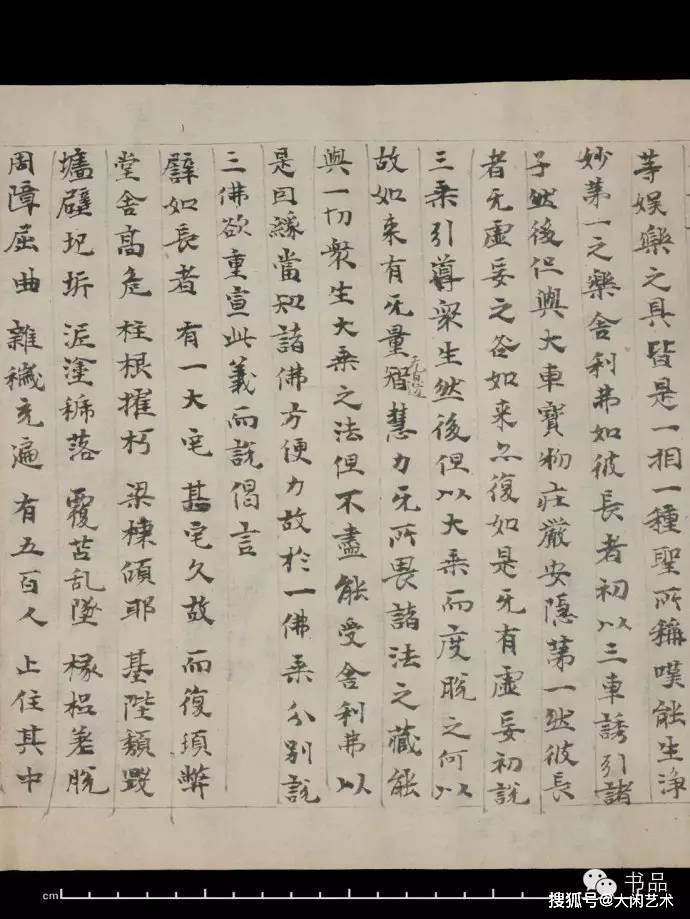 等娱樂之具皆是一相一種聖所稱嘆能生淨
妙第一之樂舍利弗如彼長者初以三車誘引諸
子然後但與大車寶物莊嚴安隱第一然彼長
者无虚妄之咎如来亦復如是无有虚妄初説
三乘引導衆生然後但以大乘而度脱之何以
故如来有无量智慧力无所畏諸法之藏能
與一切衆生大乘之法但不盡能受舍利弗以
是因緣當知諸佛方便力故於一佛乘分别説
三佛欲重宣此義而説偈言
譬如長者 有一大宅 其宅久故 而復頓弊
堂舍高危 柱根摧朽 梁棟傾耶 基陛頹毁
墻壁圯坼 泥塗褫落 覆苫乱墜 椽梠差脱
周障屈曲 雜穢充遍 有五百人 止住其中
cm
书品
搜狐号@大闲艺术